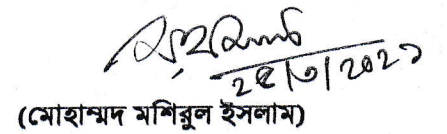 ২৫/৩/২০২১
(মোহাম্মদ মশিরুল ইসলাম)